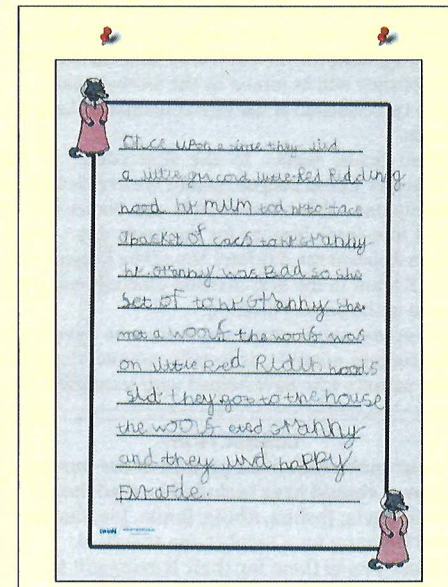 Once upon a time they livd
a little girl cord little Red Ridding
hood hr mum tod hr to tace
a packet of cacs to hr Granny
hr Granny was Bad so she
set of to hr Granny she
met a woolf the woolf was
on little Red Ridin hoods
sid they got to the house
the woolf eted Granny
and they livd happy
Evrarde.